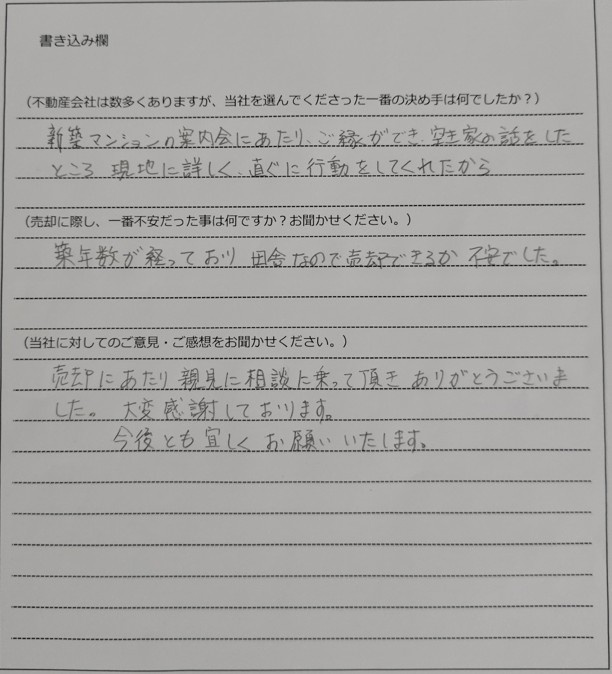 書き込み欄
(不動産会社は数多くありますが、当社を選んでくださった一番の決め手は何でしたか?)
新築マンションの案内会にあたり、ご縁ができ、空き家の話をした
ところ 現地に詳しく、直ぐに行動をしてくれたから
(売却に際し、一番不安だった事は何ですか?お聞かせください。)
築年数が経っており 田舎なので売却できるか 不安でした。
(当社に対してのご意見・ご感想をお聞かせください。)
売却にあたり 親見に相談に乗って頂き ありがとうございま
した。 大変感謝しております。
今後とも宜しく お願いいたします。